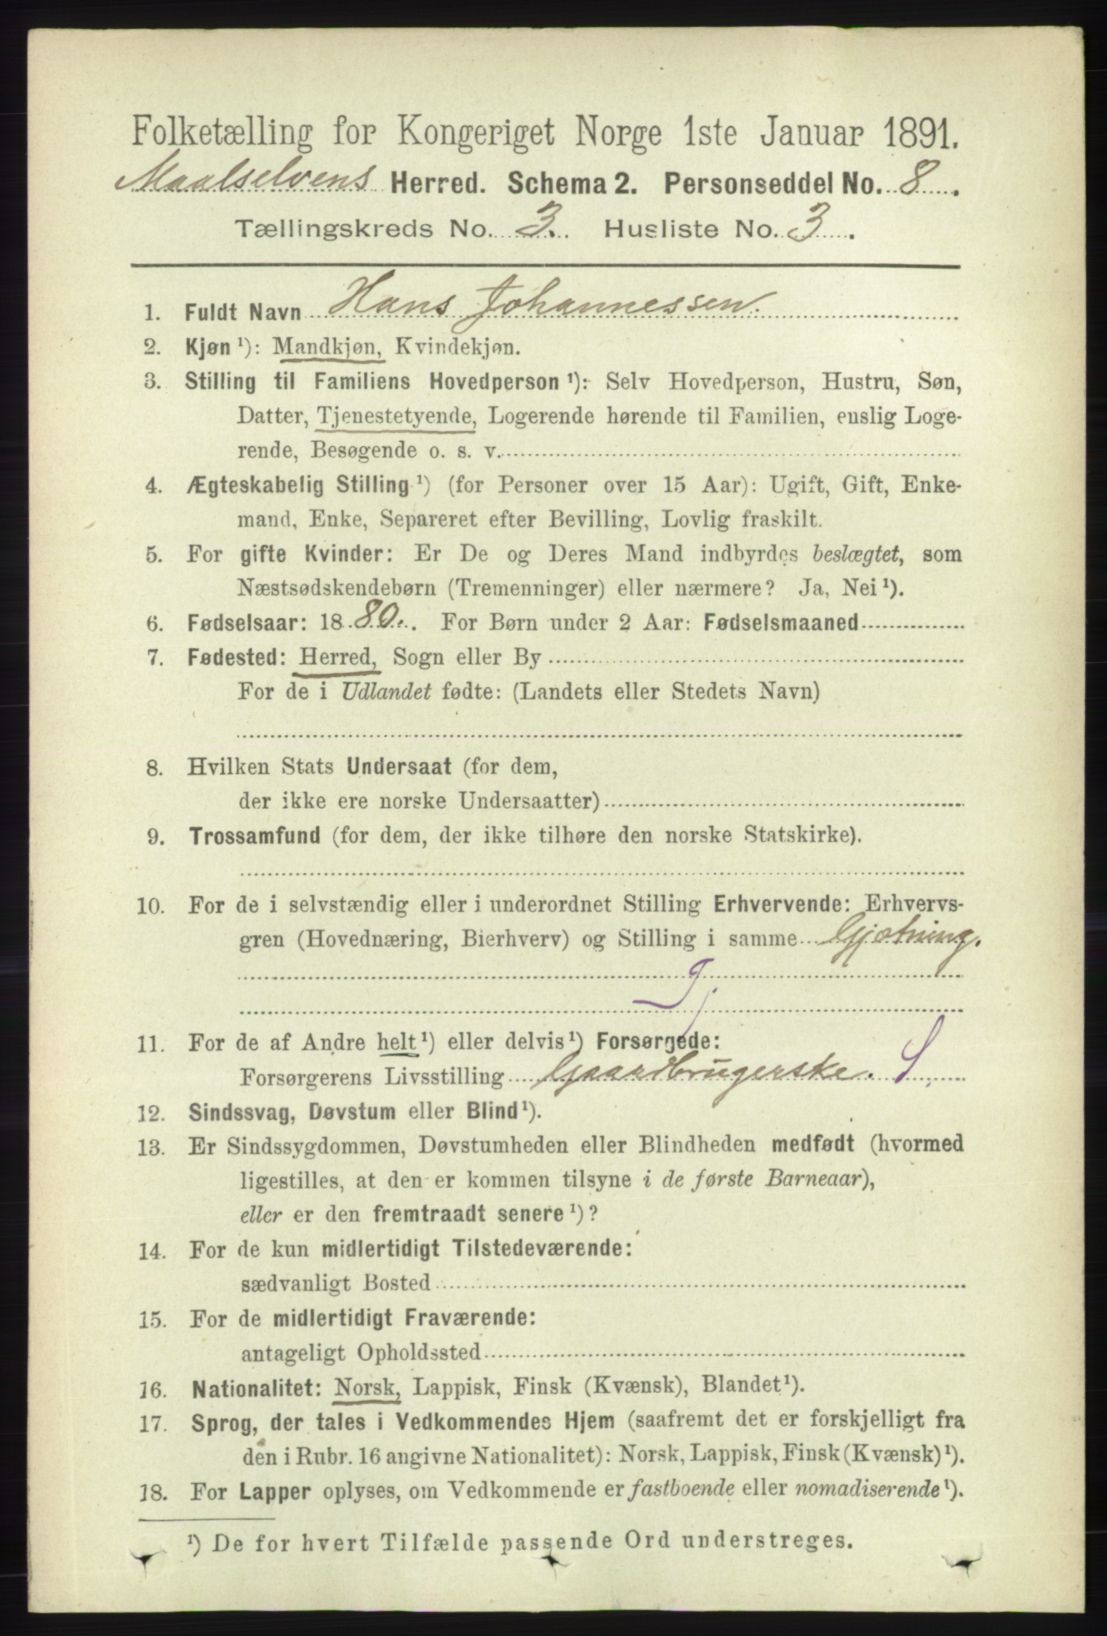 Folketælling for Kongeriget Norge 1ste Januar 1891.
Maalselvens Herred. Schema 2. Personseddel No. 8.
Tællingskreds No. 3. Husliste No. 3.
1. Fuldt Navn Hans Johannessen.
2. Kjøn ¹): Mandkjøn, Kvindekjøn.
3. Stilling til Familiens Hovedperson ¹): Selv Hovedperson, Hustru, Søn,
Datter, Tjenestetyende, Logerende hørende til Familien, enslig Loge-
rende, Besøgende o. s. v.
4. Ægteskabelig Stilling ¹) (for Personer over 15 Aar): Ugift, Gift, Enke-
mand, Enke, Separeret efter Bevilling, Lovlig fraskilt.
5. For gifte Kvinder: Er De og Deres Mand indbyrdes beslægtet, som
Næstsødskendebørn (Tremenninger) eller nærmere? Ja, Nei ¹).
6. Fødselsaar: 1880. For Børn under 2 Aar: Fødselsmaaned
7. Fødested: Herred, Sogn eller By
For de i Udlandet fødte: (Landets eller Stedets Navn)
8. Hvilken Stats Undersaat (for dem,
der ikke ere norske Undersaatter)
9. Trossamfund (for dem, der ikke tilhøre den norske Statskirke).
10. For de i selvstændig eller i underordnet Stilling Erhvervende: Erhvervs-
gren (Hovednæring, Bierhverv) og Stilling i samme Gjætning.
11. For de af Andre helt ¹) eller delvis ¹) Forsørgede:
Forsørgerens Livsstilling Gaardbrugerske. S.
12. Sindssvag, Døvstum eller Blind ¹).
13. Er Sindssygdommen, Døvstumheden eller Blindheden medfødt (hvormed
ligestilles, at den er kommen tilsyne i de første Barneaar),
eller er den fremtraadt senere ¹)?
14. For de kun midlertidigt Tilstedeværende:
sædvanligt Bosted
15. For de midlertidigt Fraværende:
antageligt Opholdssted
16. Nationalitet: Norsk, Lappisk, Finsk (Kvænsk), Blandet ¹).
17. Sprog, der tales i Vedkommendes Hjem (saafremt det er forskjelligt fra
den i Rubr. 16 angivne Nationalitet): Norsk, Lappisk, Finsk (Kvænsk) ¹).
18. For Lapper oplyses, om Vedkommende er fastboende eller nomadiserende ¹).
¹) De for hvert Tilfælde passende Ord understreges.